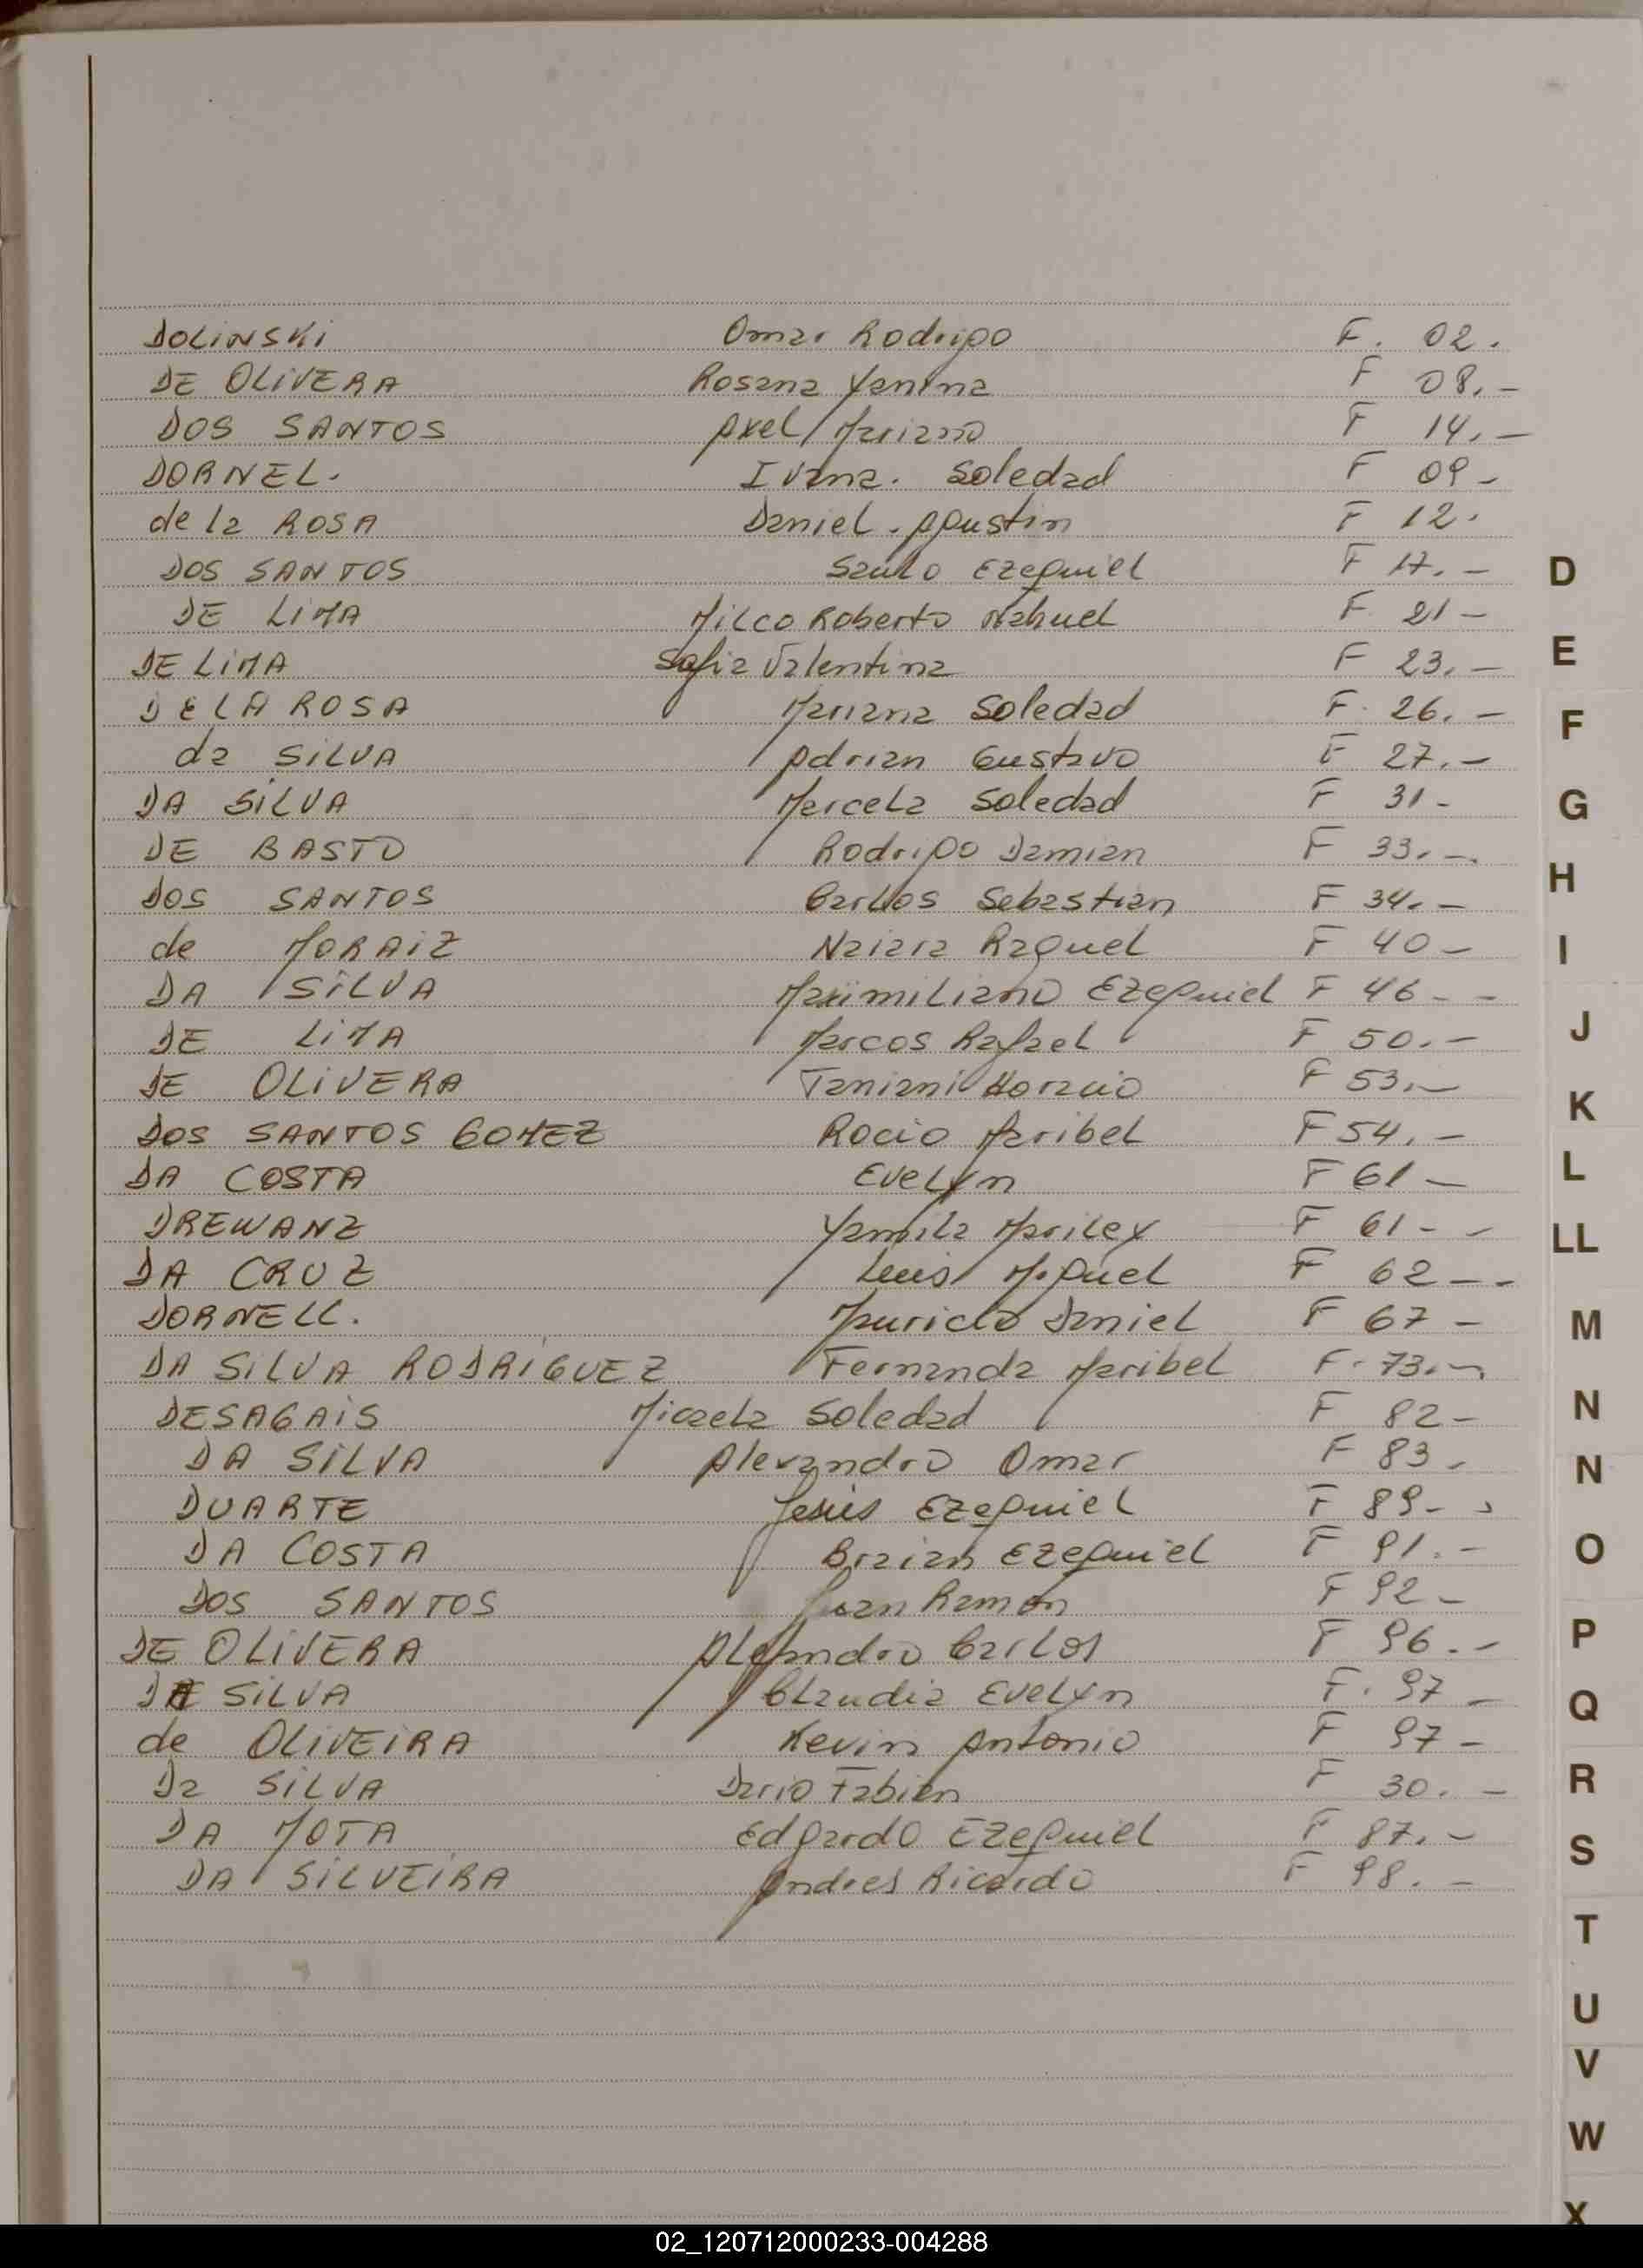 DOLINSKI Omar Rodrigo F. 02.
DE OLIVERA Rosana Yanina F 08.-
DOS SANTOS Axel Mariano F 14.-
DORNEL. Ivana. Soledad F 09-
de la ROSA Daniel. Agustin F 12.
DOS SANTOS Saulo Ezequiel F 17.-
DE LIMA Milco Roberto Nahuel F. 21-
DE LIMA Sofia Valentina F 23.-
DE LA ROSA Mariana Soledad F. 26.-
da SILVA Adrian Gustavo F 27.-
DA SILVA Marcela Soledad F 31-
DE BASTO Rodrigo Damian F 33.-.
DOS SANTOS Carlos Sebastian F 34.-
de MORAIZ Naiara Raquel F 40-
DA SILVA Maximiliano Ezequiel F 46--
DE LIMA Marcos Rafael F 50.-
DE OLIVERA Horacio F 53.-
DOS SANTOS GOMEZ Rocio Maribel F 54.-
DA COSTA Evelyn F 61-
DREWANZ Yamila Mariley F 61--
DA CRUZ Luis Miguel F 62--
DORNELL. Mauricio Daniel F 67-
DA SILVA RODRIGUEZ Fernanda Maribel F. 73.-
DESAGAIS Micaela Soledad F 82-
DA SILVA Alexandro Omar F 83.
DUARTE Jesús Ezequiel F 89-
DA COSTA Braian Ezequiel F 91.-
DOS SANTOS Juan Ramón F 92-
DE OLIVERA Alejandro Carlos F 96.-
DA SILVA Claudia Evelyn F. 97-
de OLIVEIRA Kevin Antonio F 97-
Da SILVA Dario Fabian F 30.-
DA MOTA Edgardo Ezequiel F 87.-
DA SILVEIRA Andres Ricardo F 98.-
D
E
F
G
H
I
J
K
L
LL
M
N
N
O
P
Q
R
S
T
U
V
W
X
02_120712000233-004288